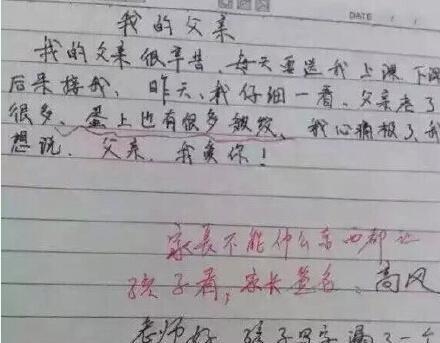 DATE / /
我的父亲
我的父亲很辛苦、每天要送我上课、下课
后来接我、昨天、我仔细一看、父亲老了
很多、蛋上也有很多皱纹、我心痛极了、我
想说、父亲、我爱你！
家长不能什么东西都让
孩子看，家长签名、高风
老师好，孩子写字漏了一个